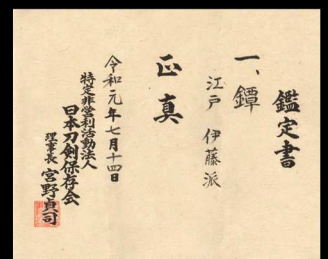 鑑定書
一、鐔
江戸 伊藤派
正真
令和元年七月十四日
特定非営利活動法人
日本刀剣保存会
理事長 宮野貞司